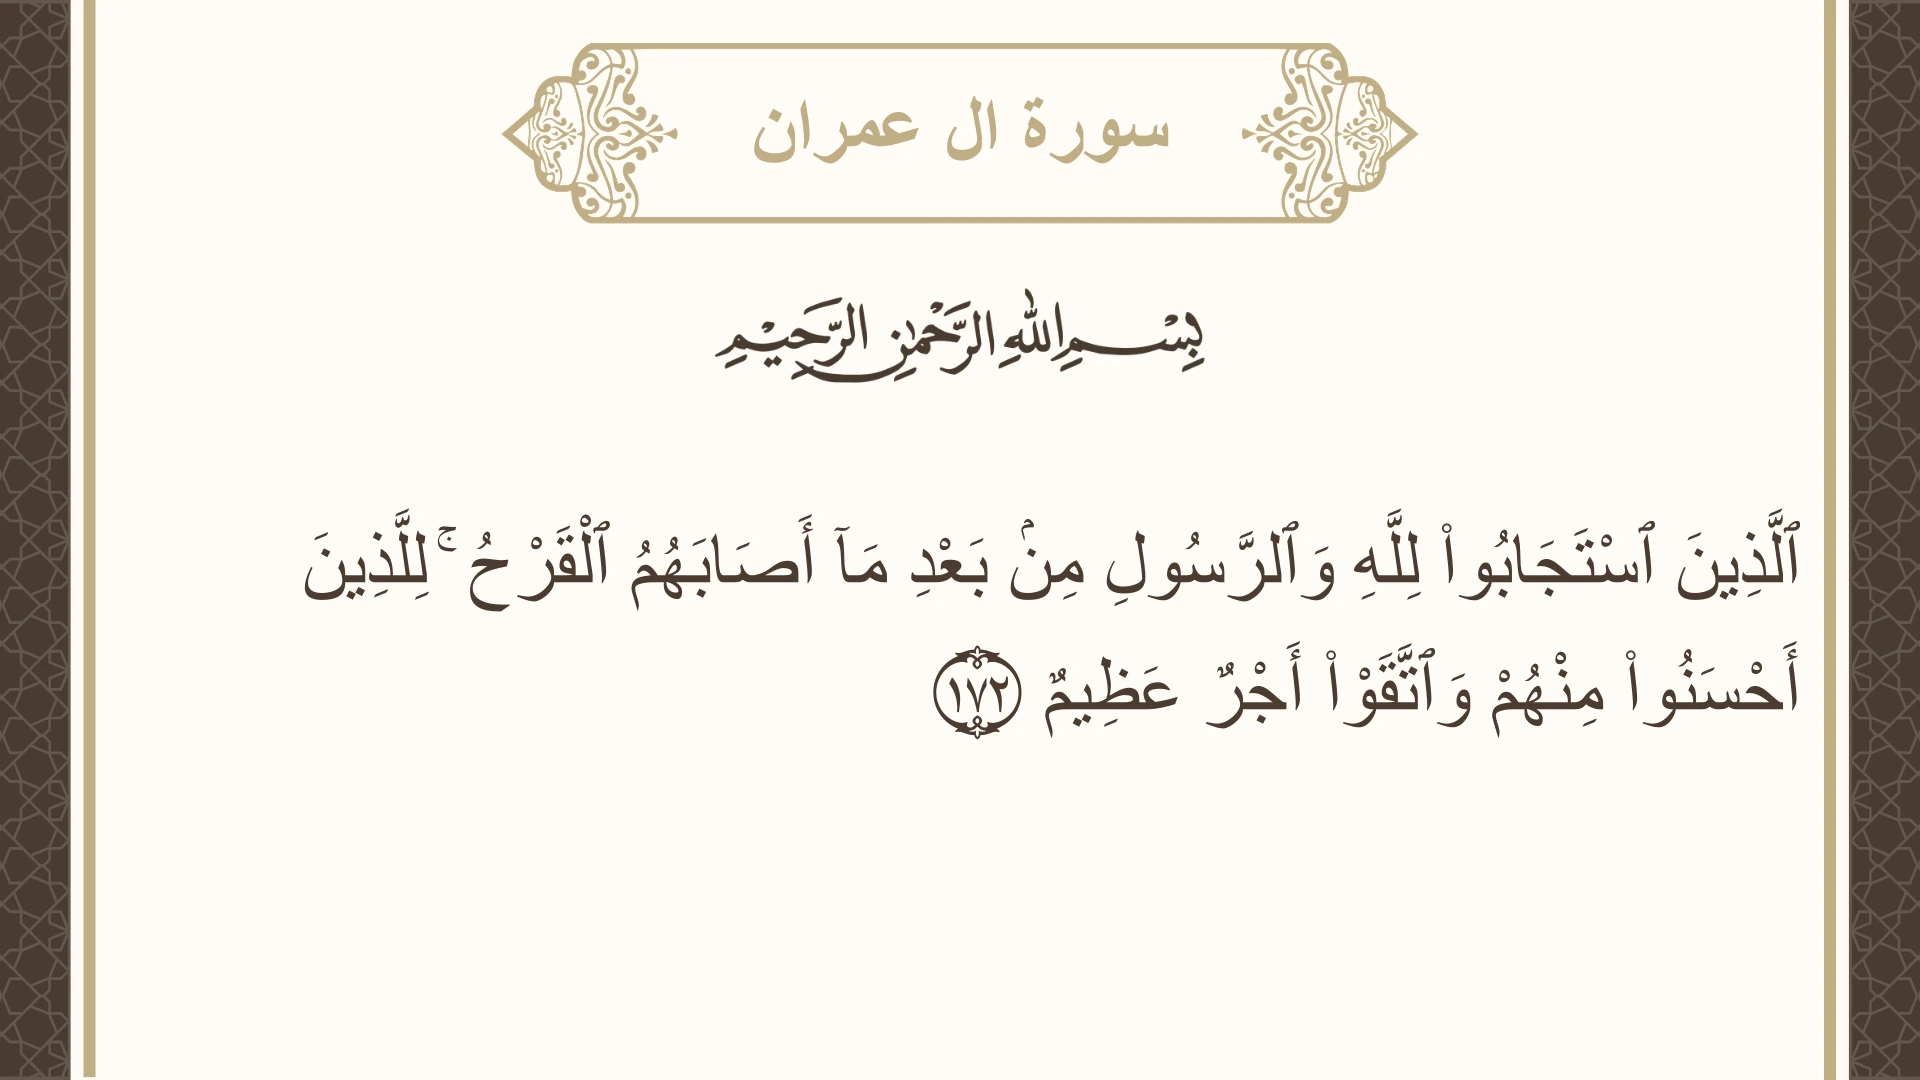 سورة ال عمران
بِسْمِ اللهِ الرَّحْمٰنِ الرَّحِيْمِ
ٱلَّذِينَ ٱسْتَجَابُوا۟ لِلَّهِ وَٱلرَّسُولِ مِنۢ بَعْدِ مَآ أَصَابَهُمُ ٱلْقَرْحُ ۚ لِلَّذِينَ
أَحْسَنُوا۟ مِنْهُمْ وَٱتَّقَوْا۟ أَجْرٌ عَظِيمٌ ١٧٢